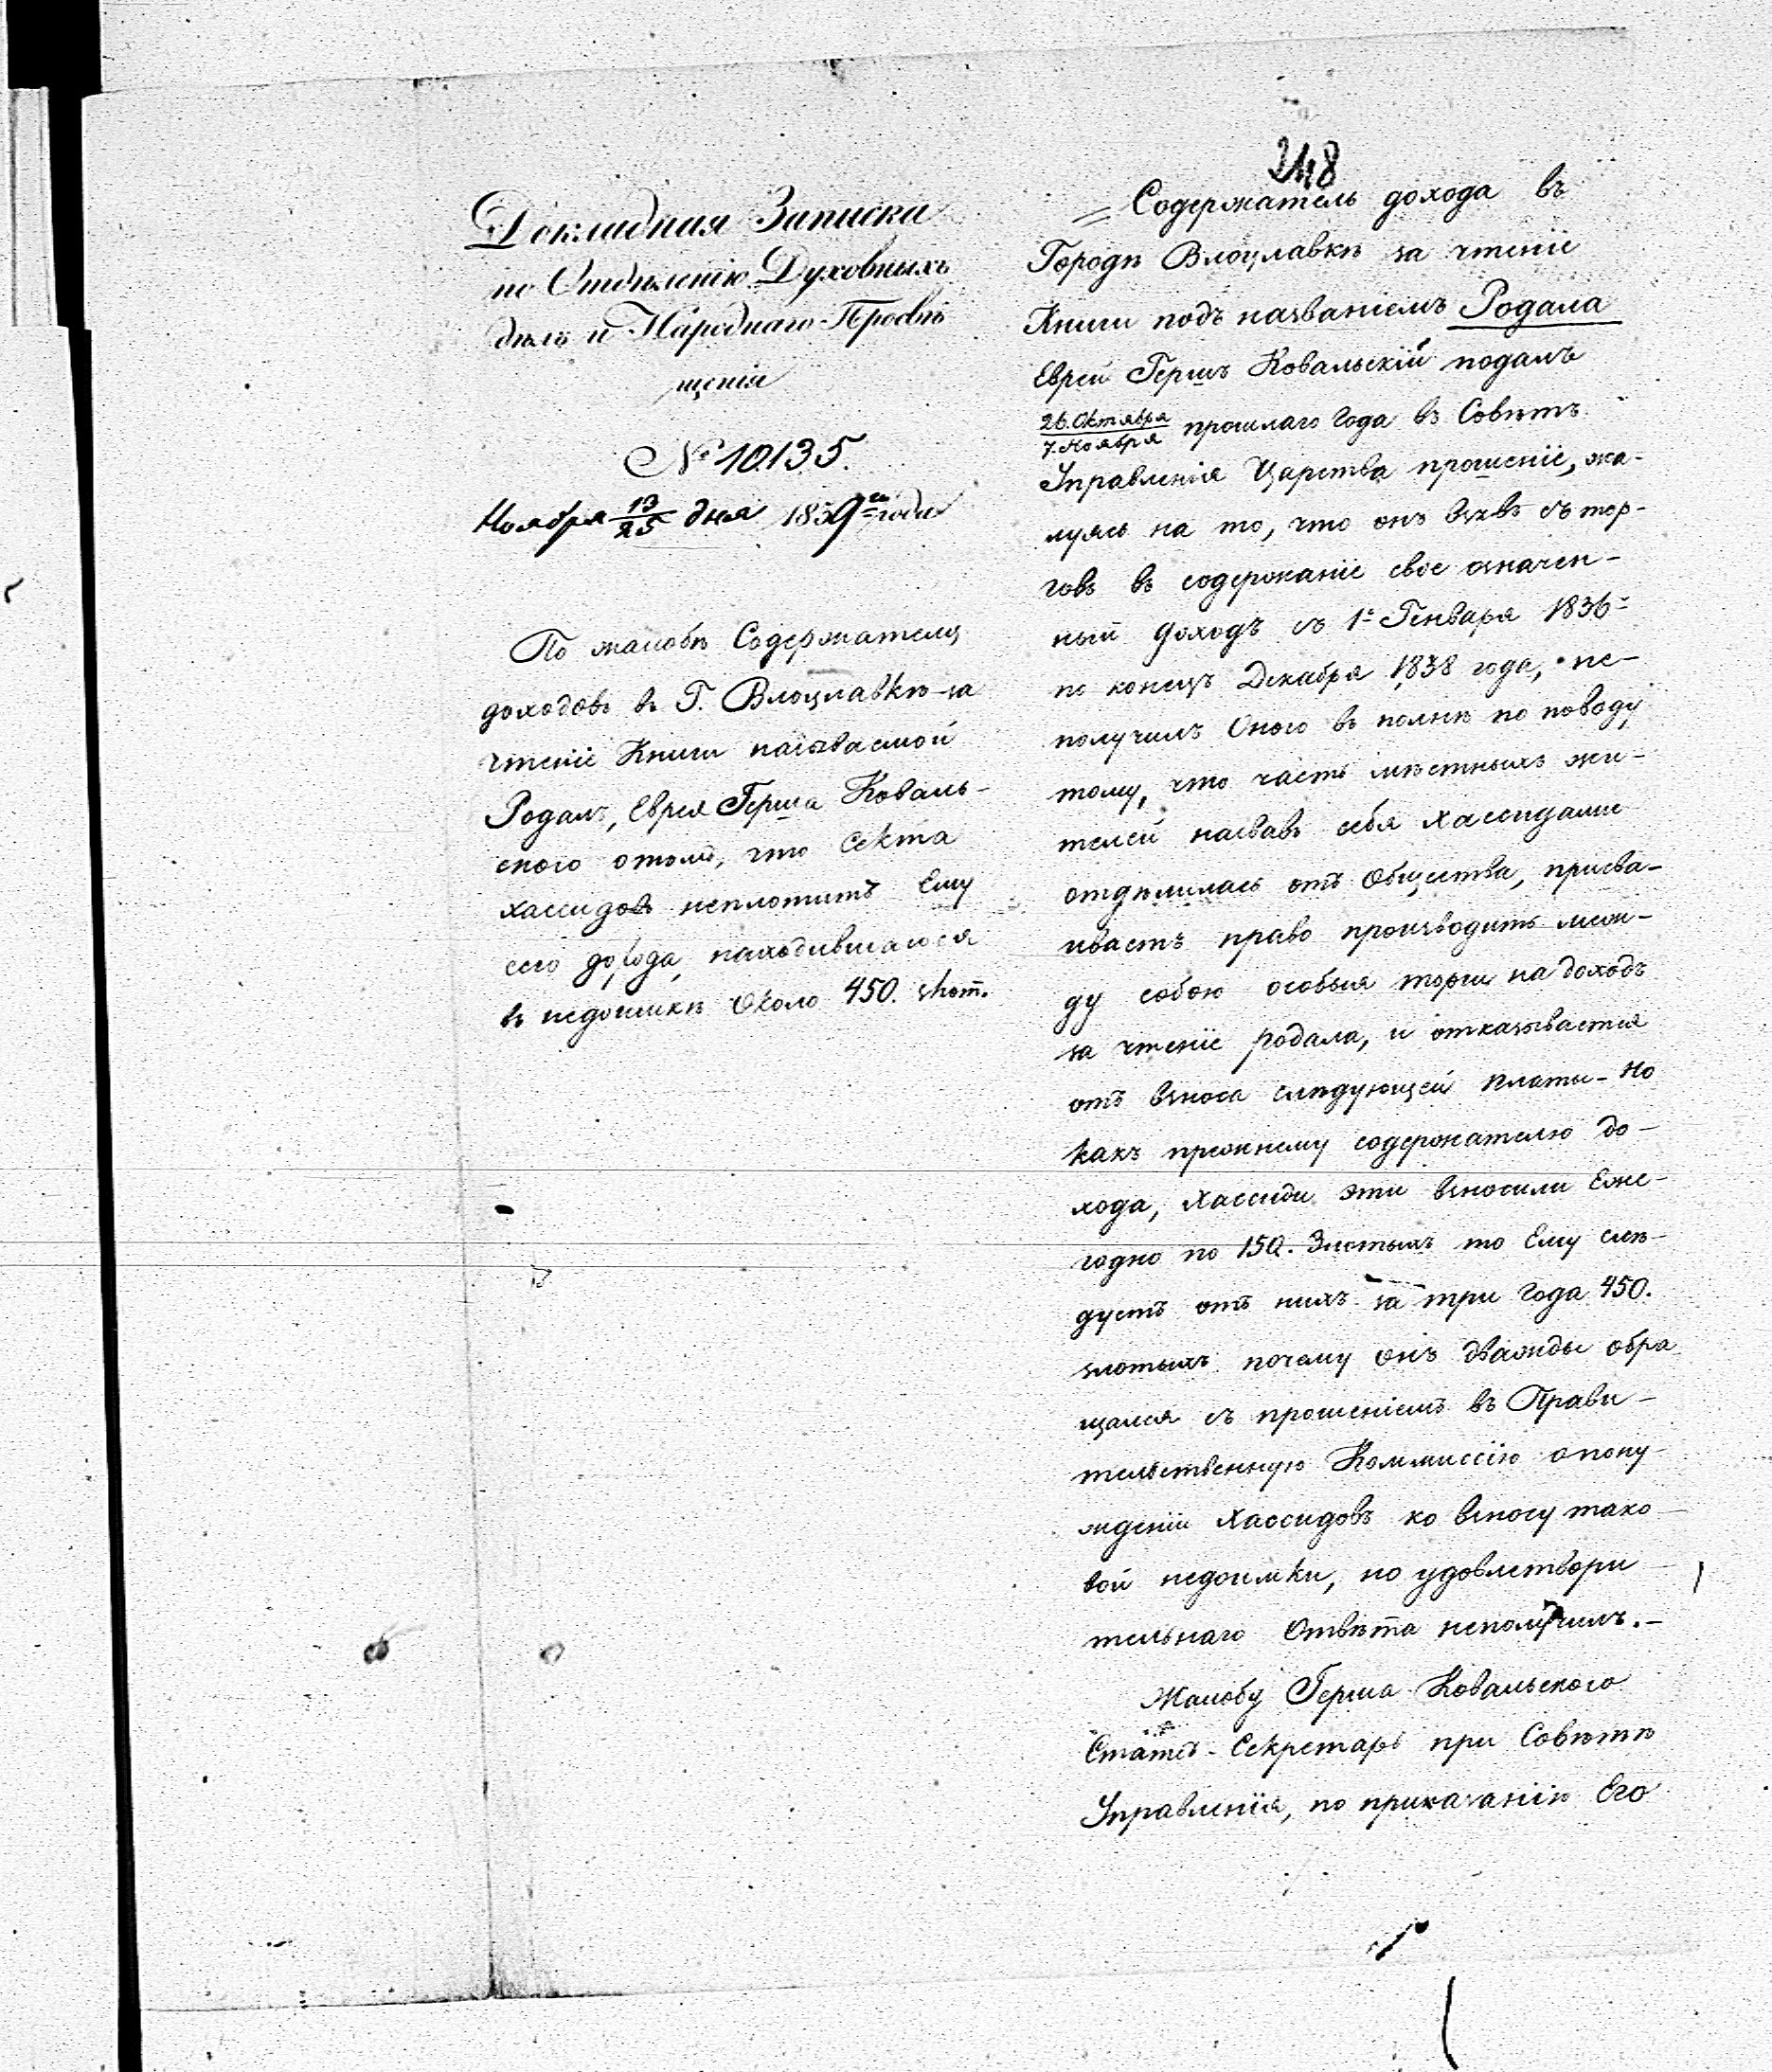 Докладная Записка
по Отдѣленію Духовныхъ
дѣлъ и Народнаго Просвѣ
щенія
№ 10135.
Ноября 13/25 дня 1839го года
По жалобѣ Содержателя
доходовъ въ Г. Влоцлавкѣ за
чтеніе Книги называемой
Родалъ, Еврея Герша Коваль-
скаго о томъ, что Секта
хассидовъ неплотитъ Ему
сего дохода, находившагося
въ недоимкѣ около 450. злот.
248
Содержатель дохода въ
Городѣ Влоцлавкѣ за чтеніе
Книги подъ названіемъ Родала
Еврей Гершъ Ковальскій подалъ
26. Октября/7. Ноября прошлаго Года въ Совѣтъ
Управленія Царства прошеніе, жа-
луясь на то, что онъ взявъ съ тор-
говъ въ содержаніе свое означен-
ный доходъ съ 1го Генваря 1836го
по конецъ Декабря 1838 года, не-
получилъ Оного въ полнѣ по поводу
тому, что часть мѣстныхъ жи-
телей назвавъ себя Хассидами
отдѣлилась отъ Общества, присва-
иваетъ право производить меж-
ду собою особыя торги на доходъ
за чтеніе родала, и отказывается
отъ взноса слѣдующей платы- Но
какъ прежнему содержателю до-
хода, Хассиди эти взносили Еже-
годно по 150. Злотыхъ то Ему слѣ-
дуетъ отъ нихъ за три года 450.
злотыхъ почему онъ дважды обра
щался съ прошеніемъ въ Прави-
тельственную Коммиссію о пону-
жденіи Хассидовъ ко взносу тако-
вой недоимки, но удовлетвори-
тельнаго Отвѣта неполучилъ.-
Жалобу Герша Ковальскаго
Статсъ-Секретарь при Совѣтѣ
Управленія, по приказанію Его